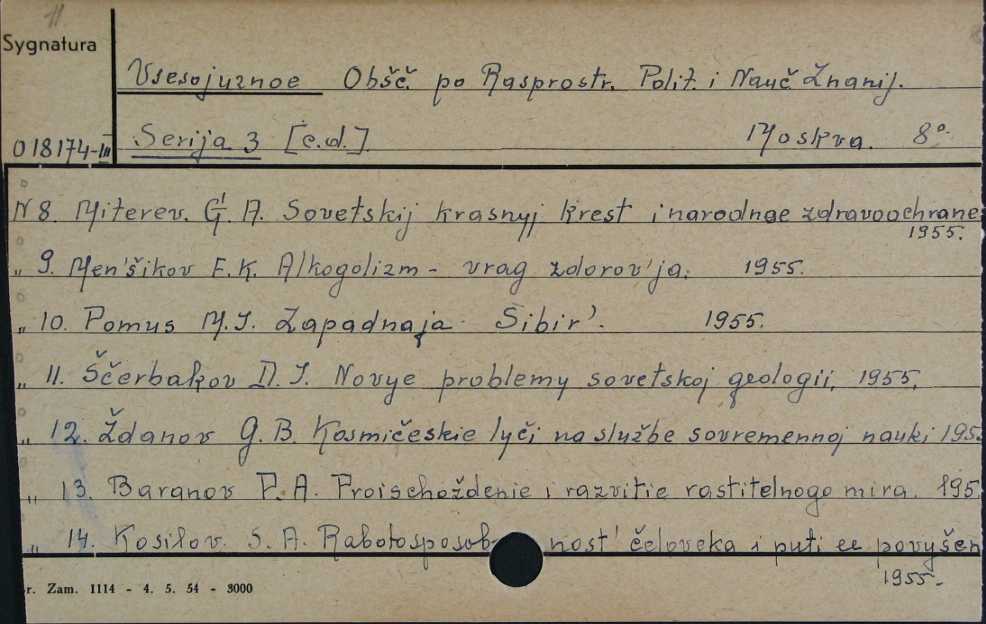 11
Sygnatura
Vsesojuznoe Obšč. po Rasprostr. Polit. i Nauč. Znanij.
018174-III Serija 3 [c.d.]. Moskva. 8°
N 8. Miterev. G. A. Sovetskij krasnyj krest i narodnoe zdravoochrane
1955.
„ 9. Men'šikov F. K. Alkogolizm - vrag zdorov'ja. 1955.
„ 10. Pomus M. I. Zapadnaja Sibir'. 1955.
„ 11. Ščerbakov D. I. Novye problemy sovetskoj geologii, 1955.
„ 12. Ždanov G. B. Kosmičeskie lyči na službe sovremennoj nauki 195
„ 13. Baranov P. A. Proischoždenie i razvitie rastitelnogo mira. 195
„ 14. Kosilov. S. A. Rabotosposob- nost' čeloveka i puti ee povyšen
1955-
r. Zam. 1114 - 4. 5. 54 - 3000